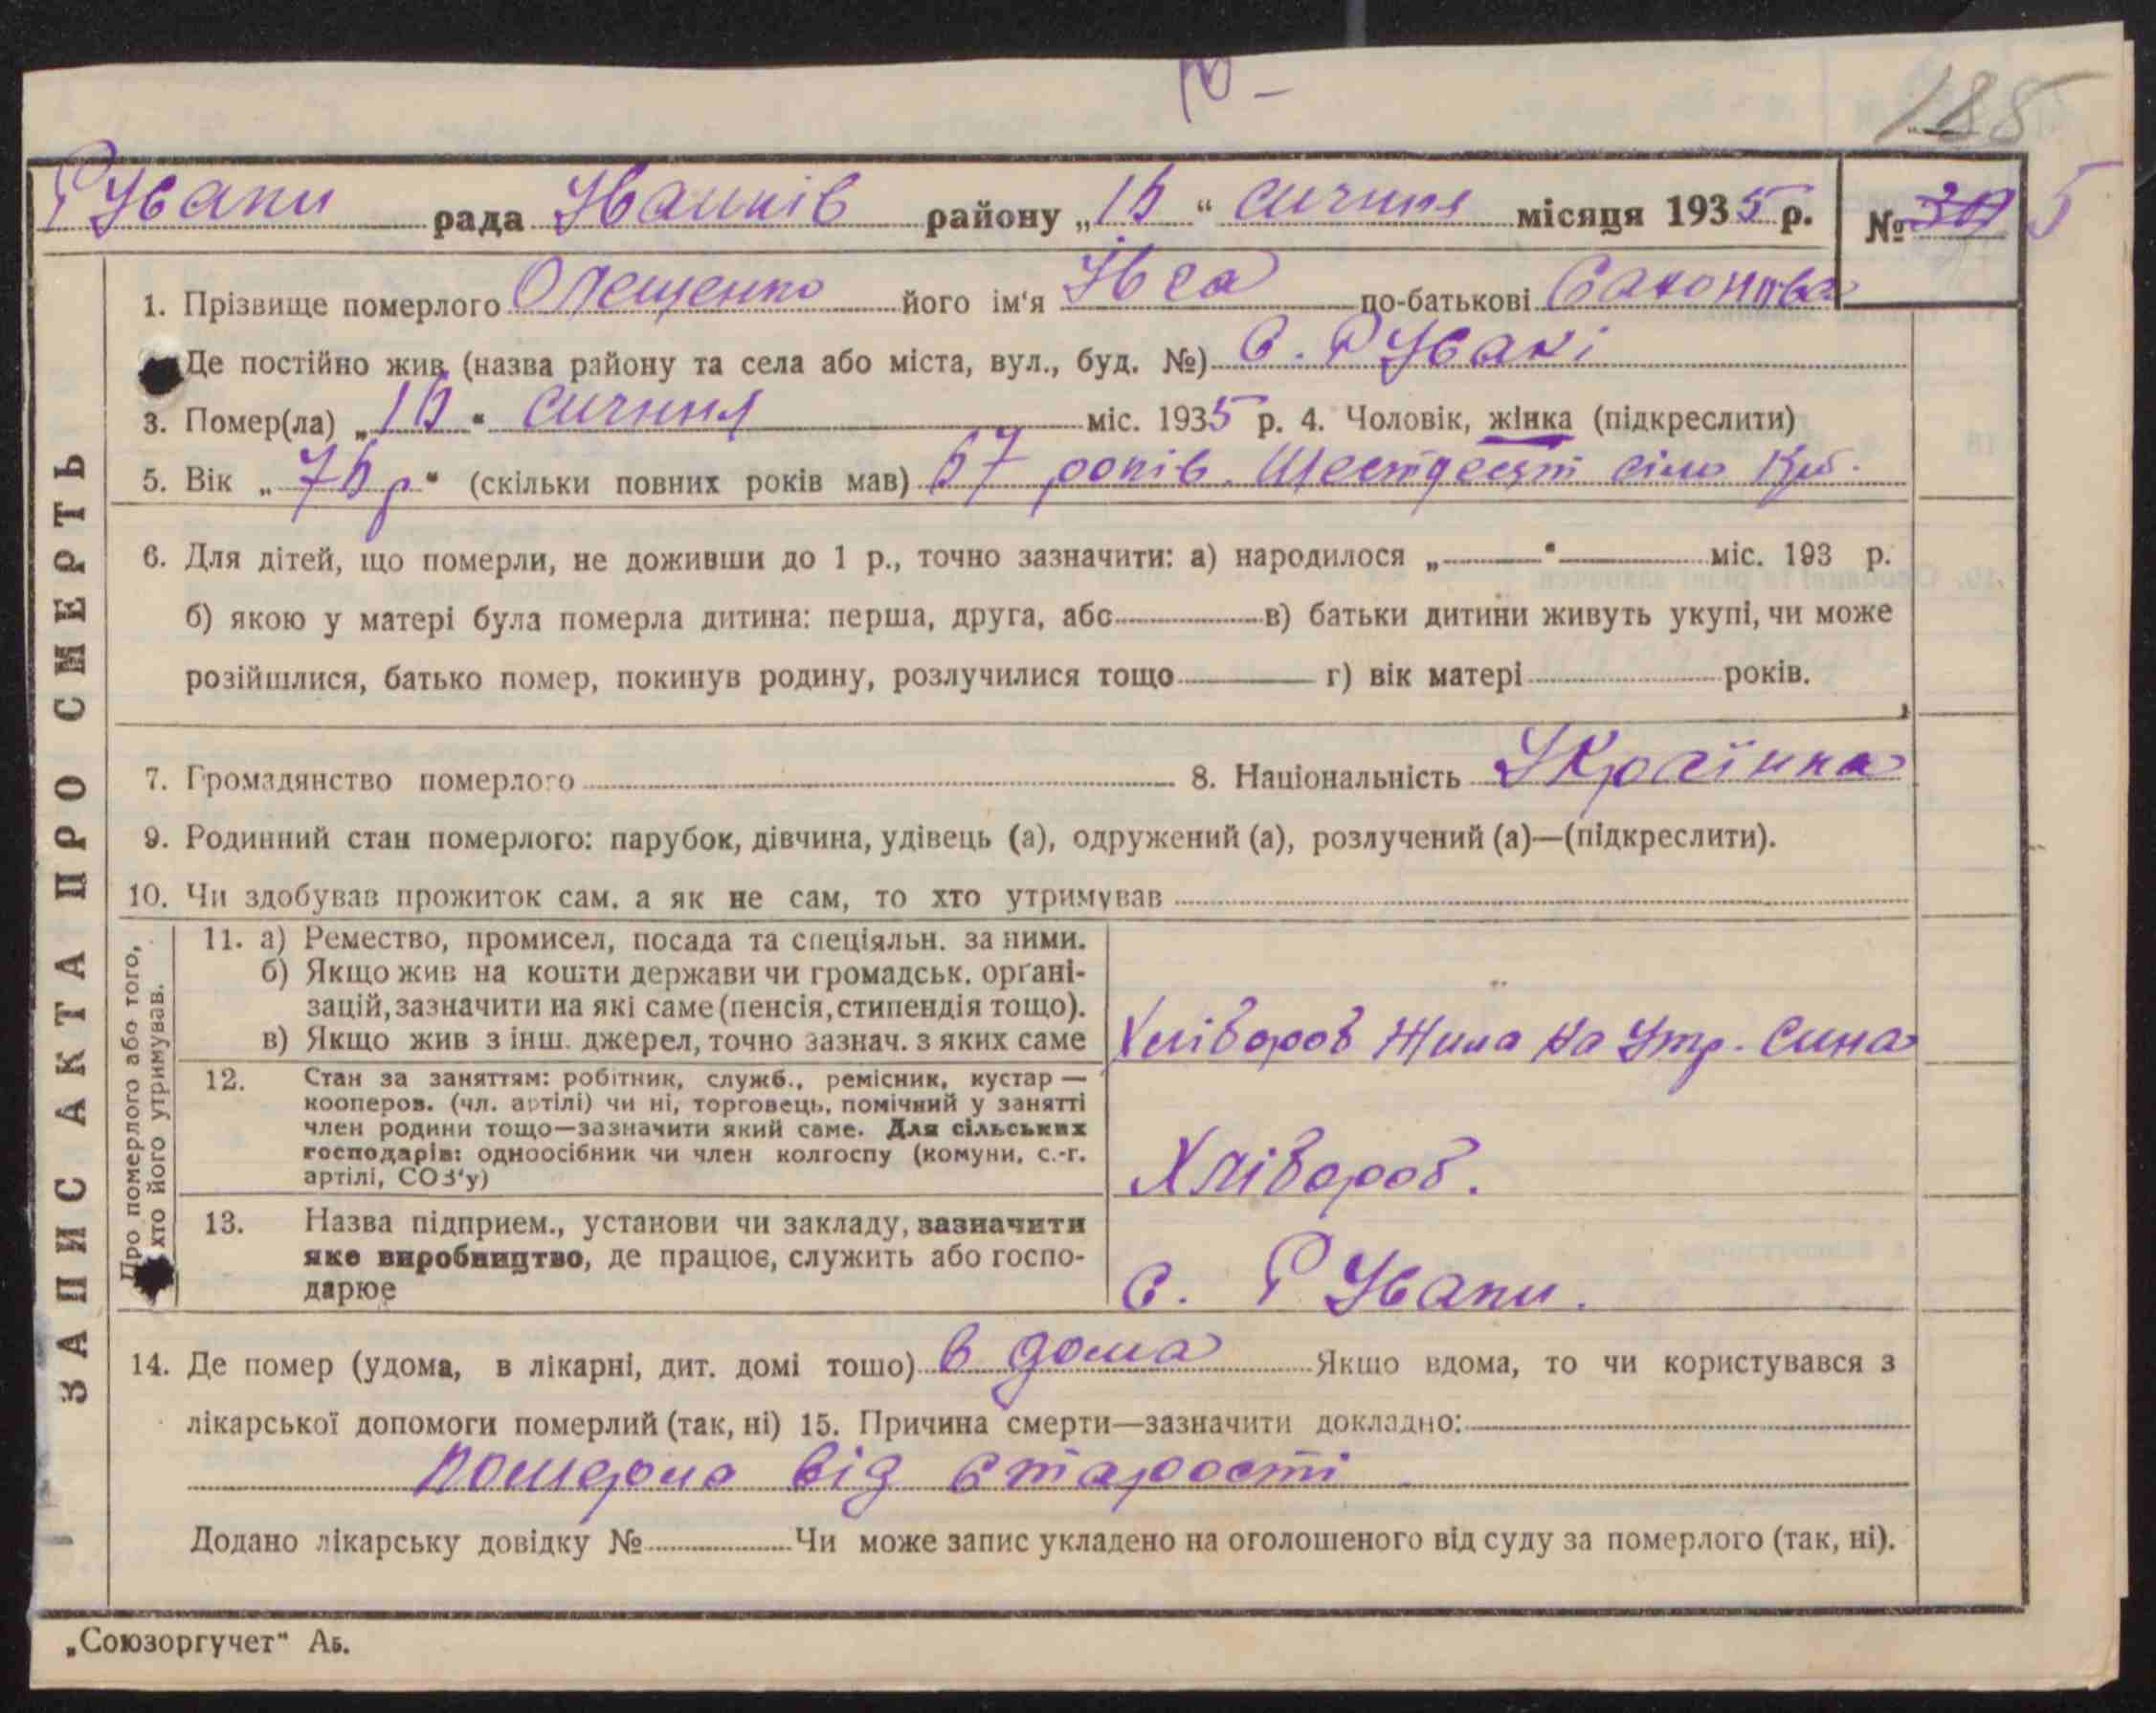 185
рада району „ “ січня місяця 1935 р. № 5
1. Прізвище померлого Олещенко його ім'я по-батькові
Де постійно жив (назва району та села або міста, вул., буд. №) с.
3. Помер(ла) „ “ січня міс. 1935 р. 4. Чоловік, жінка (підкреслити)
5. Вік „ “ (скільки повних років мав) 67 років. Шестдесят сім
6. Для дітей, що померли, не доживши до 1 р., точно зазначити: а) народилося „ “ міс. 193 р.
б) якою у матері була померла дитина: перша, друга, або в) батьки дитини живуть укупі, чи може
розійшлися, батько помер, покинув родину, розлучилися тощо г) вік матері років.
7. Громадянство померлого 8. Національність Українка
9. Родинний стан померлого: парубок, дівчина, удівець (а), одружений (а), розлучений (а)—(підкреслити).
10. Чи здобував прожиток сам, а як не сам, то хто утримував
ЗАПИС АКТА ПРО СМЕРТЬ
Про померлого або того,
хто його утримував.
11. а) Ремество, промисел, посада та спеціяльн. за ними.
б) Якщо жив на кошти держави чи громадськ. органі-
зацій, зазначити на які саме (пенсія, стипендія тощо).
в) Якщо жив з інш. джерел, точно зазнач. з яких саме
Хлібороб Жила на Утр. Сина
12. Стан за заняттям: робітник, служб., ремісник, кустар —
кооперов. (чл. артілі) чи ні, торговець, помічний у занятті
член родини тощо—зазначити який саме. Для сільських
господарів: одноосібник чи член колгоспу (комуни, с.-г.
артілі, СОЗ'у)
Хлібороб.
13. Назва підприєм., установи чи закладу, зазначити
яке виробництво, де працює, служить або госпо-
дарює
с.
14. Де помер (удома, в лікарні, дит. домі тощо) в дома Якщо вдома, то чи користувався з
лікарської допомоги померлий (так, ні) 15. Причина смерти—зазначити докладно:
померла від старості
Додано лікарську довідку № Чи може запис укладено на оголошеного від суду за померлого (так, ні).
„Союзоргучет“ Аб.